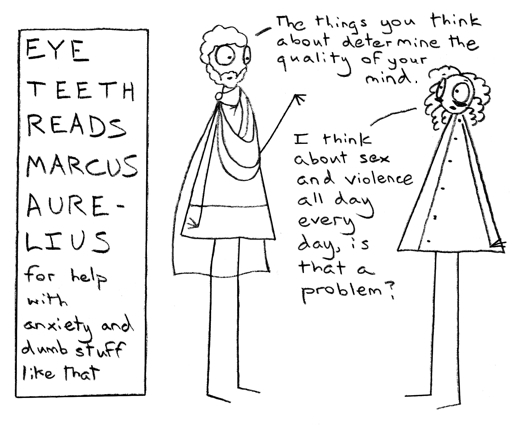 EYE
TEETH
READS
MARCUS
AURE-
LIUS
for help
with
anxiety and
dumb stuff
like that
The things you think
about determine the
quality of your
mind.
I think
about sex
and violence
all day
every
day, is
that a
problem?